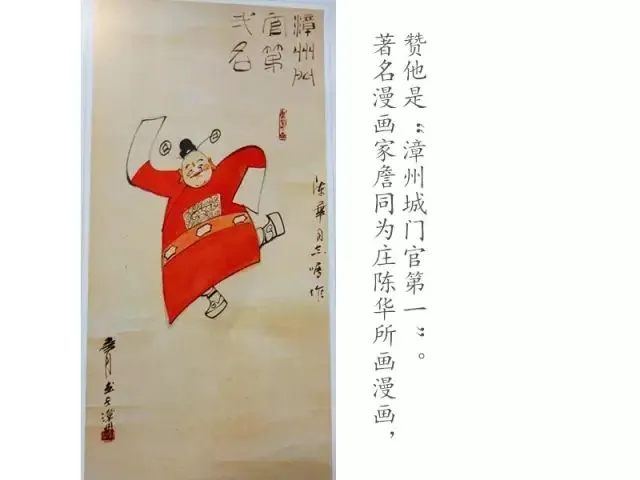 漳州门
官第
弌名
陈华同志嘱作
著名漫画家詹同为庄陈华所画漫画，
赞他是“漳州城门官第一”。